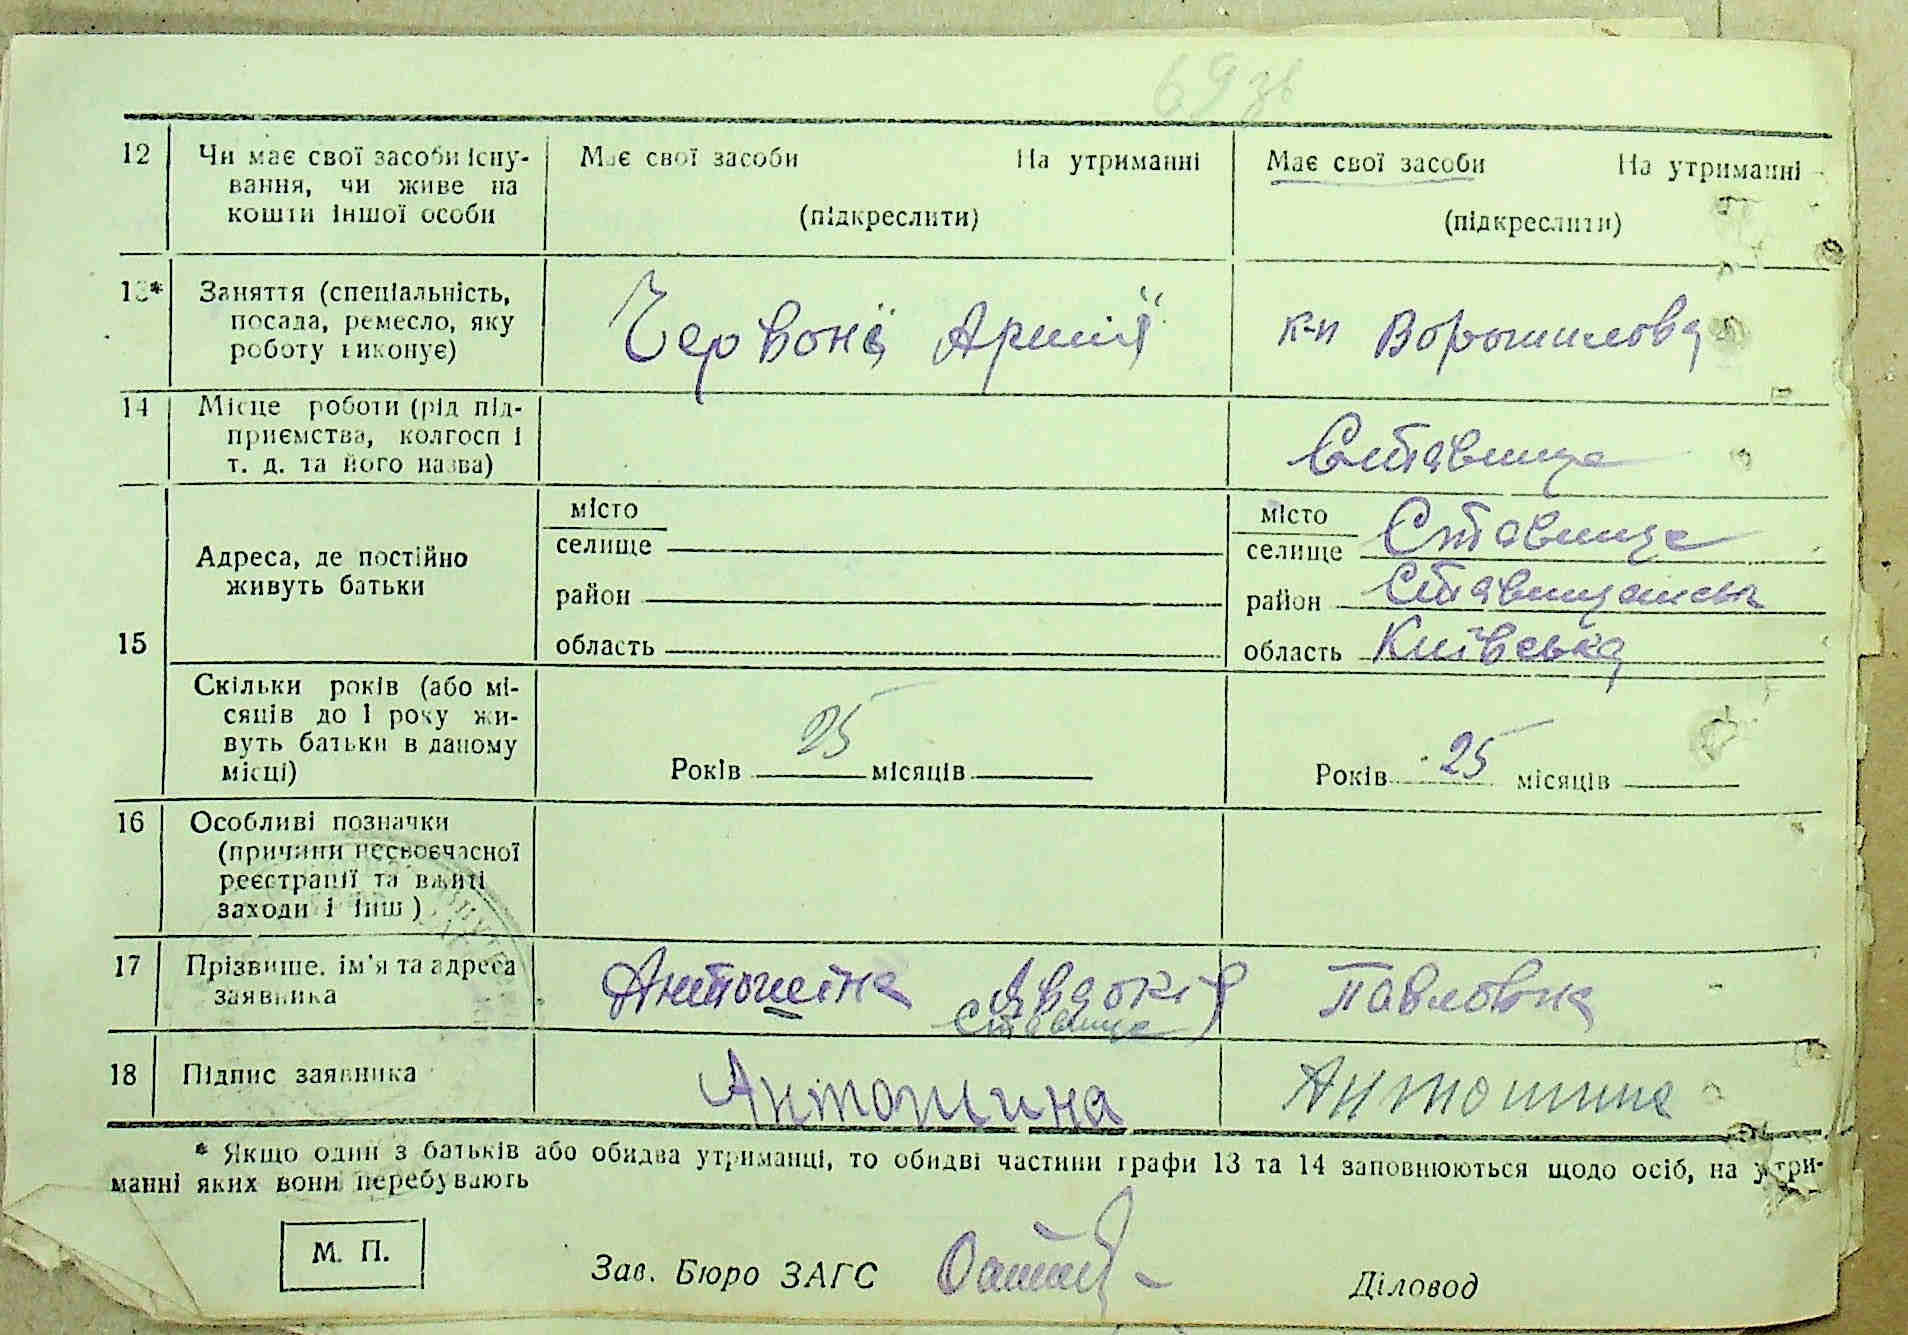 69 зв
12 Чи має свої засоби існу-
вання, чи живе на
кошти іншої особи
Має свої засоби На утриманні
(підкреслити)
Має свої засоби На утриманні
(підкреслити)
13* Заняття (спеціальність,
посада, ремесло, яку
роботу виконує)
Червоній Армії
к-п Ворошилова
14 Місце роботи (рід під-
приємства, колгосп і
т. д. та його назва)
Ставище
15
Адреса, де постійно
живуть батьки
місто
селище
район
область
місто
селище Ставище
район Ставищанськ
область Київська
Скільки років (або мі-
сяців до 1 року жи-
вуть батьки в даному
місці)
Років 25 місяців
Років 25 місяців
16 Особливі позначки
(причини несвоєчасної
реєстрації та вжиті
заходи і інш)
17 Прізвище, ім'я та адреса
заявника
Антошіна Явдокія Павловна
Ставище
18 Підпис заявника
Антошина Антошина
* Якщо один з батьків або обидва утриманці, то обидві частини графи 13 та 14 заповнюються щодо осіб, на утри-
манні яких вони перебувають
М. П.
Зав. Бюро ЗАГС
Діловод